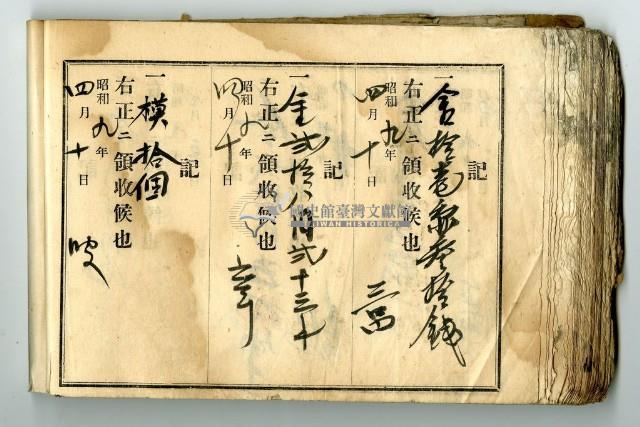 記
一金拾壱円参拾銭
右正ニ領收候也
昭和九年
四月十日
記
一金弐拾八円弐十三十
右正ニ領收候也
昭和九年
四月十日
章
記
一模拾個
右正ニ領收候也
昭和九年
四月十日
國史館臺灣文獻館
TAIWAN HISTORICA